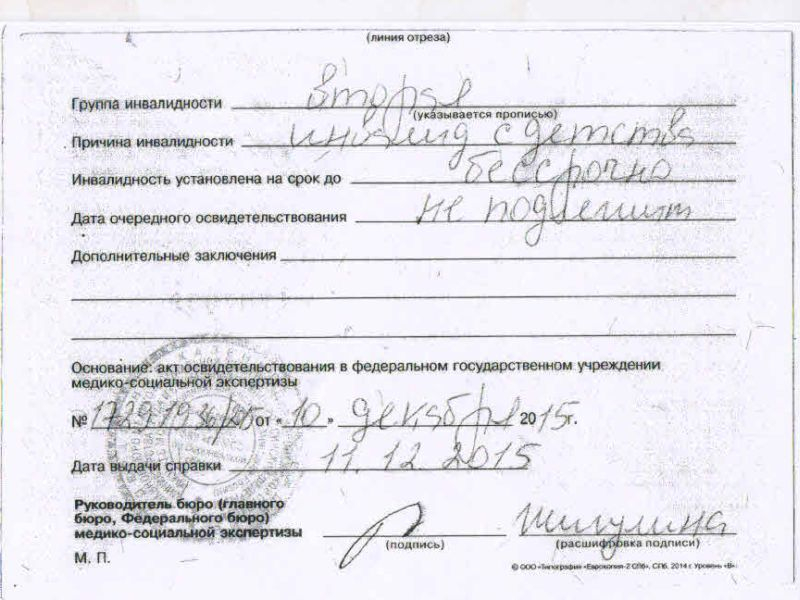 (линия отреза)
Группа инвалидности вторая
(указывается прописью)
Причина инвалидности инвалид с детства
Инвалидность установлена на срок до бессрочно
Дата очередного освидетельствования не подлежит
Дополнительные заключения
Основание: акт освидетельствования в федеральном государственном учреждении
медико-социальной экспертизы
№ 1729.19.36/2015 от «10» декабря 2015г.
Дата выдачи справки 11.12.2015
Руководитель бюро (главного
бюро, Федерального бюро)
медико-социальной экспертизы Жигулина
(подпись) (расшифровка подписи)
М. П.
© ООО «Типография «Еврокопия-2 СПб», СПб, 2014 г. Уровень «В»